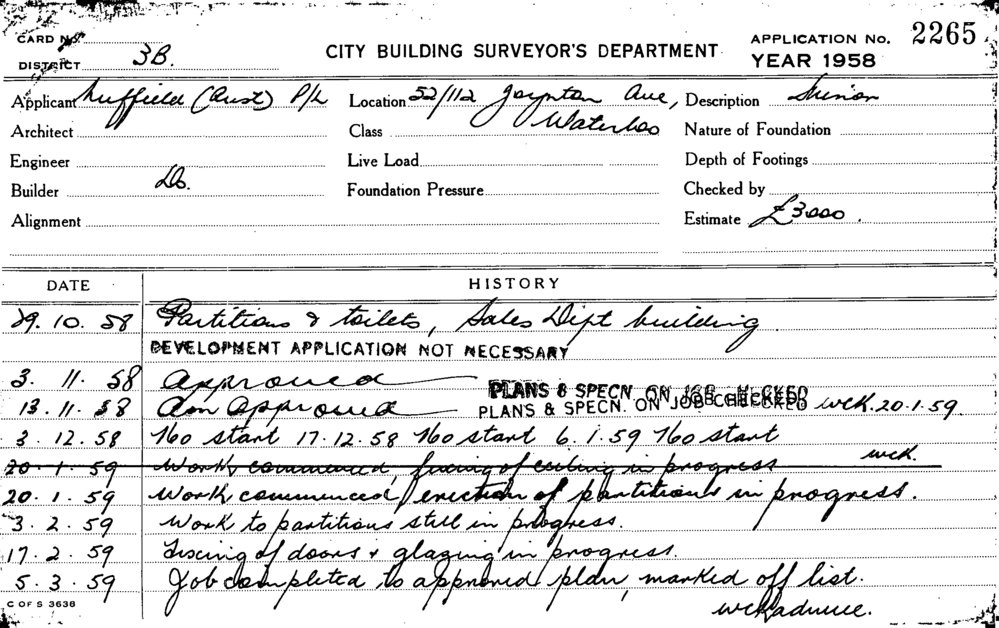 CARD No.
DISTRICT 3B.
CITY BUILDING SURVEYOR'S DEPARTMENT
APPLICATION No. 2265
YEAR 1958
Applicant Nuffield (Aust) P/L Location 52/112 Joynton Ave, Description Minor
Architect Class Waterloo Nature of Foundation
Engineer Live Load Depth of Footings
Builder Do. Foundation Pressure Checked by
Alignment Estimate £3000.
DATE HISTORY
29.10.58 Partitions & toilets, Sales Dept building
DEVELOPMENT APPLICATION NOT NECESSARY
3.11.58 Approved PLANS & SPECN. ON JOB CHECKED
13.11.58 Am Approved PLANS & SPECN. ON JOB CHECKED WCK. 20.1.59.
3.12.58 No start 17.12.58 No start 6.1.59 No start
20.1.59 Work commenced, fixing of ceiling in progress WCK.
20.1.59 Work commenced, erection of partitions in progress.
3.2.59 Work to partitions still in progress.
17.2.59 Fixing of doors & glazing in progress.
5.3.59 Job completed to approved plan, marked off list.
C OF S 3638